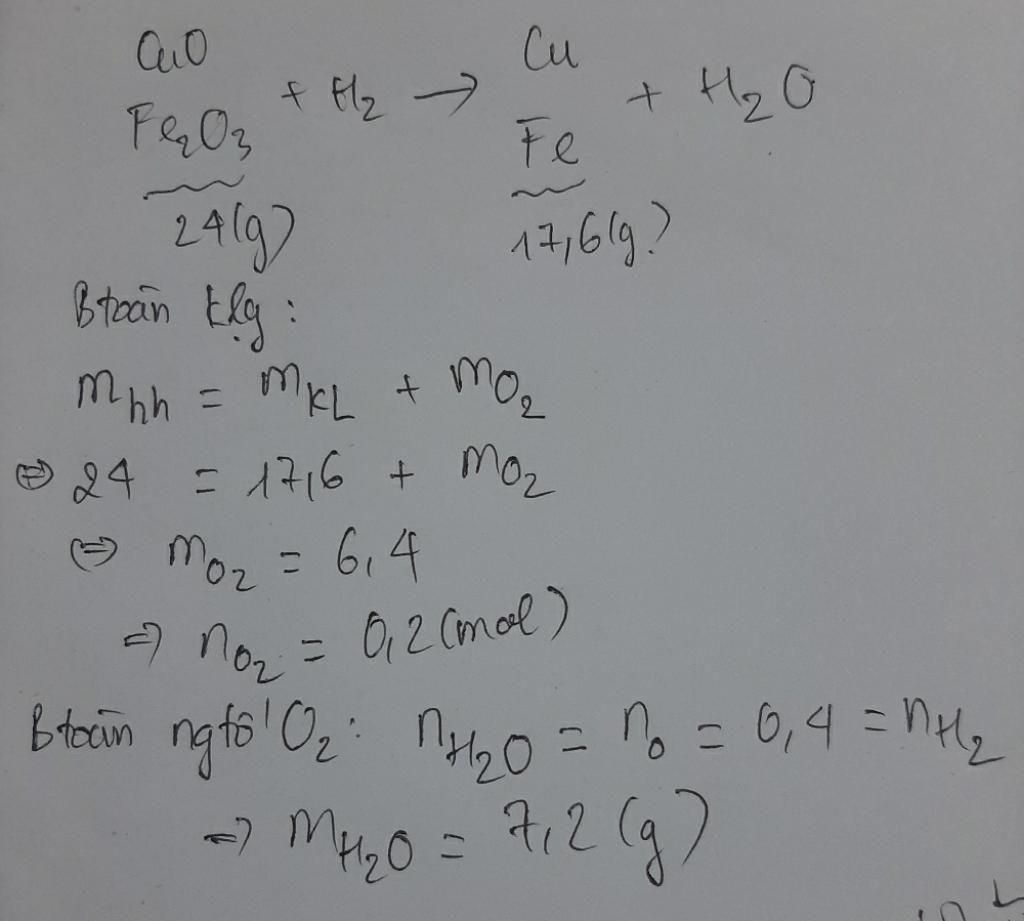 CuO Cu
+ H₂ → + H₂O
Fe₂O₃ Fe
24(g) 17,6(g)
Btoàn klg :
m hh = m KL + m O₂
⇔ 24 = 17,6 + m O₂
⇔ m O₂ = 6,4
⇒ n O₂ = 0,2 (mol)
Btoàn ngtố O₂ : n H₂O = n O = 0,4 = n H₂
⇒ m H₂O = 7,2 (g)